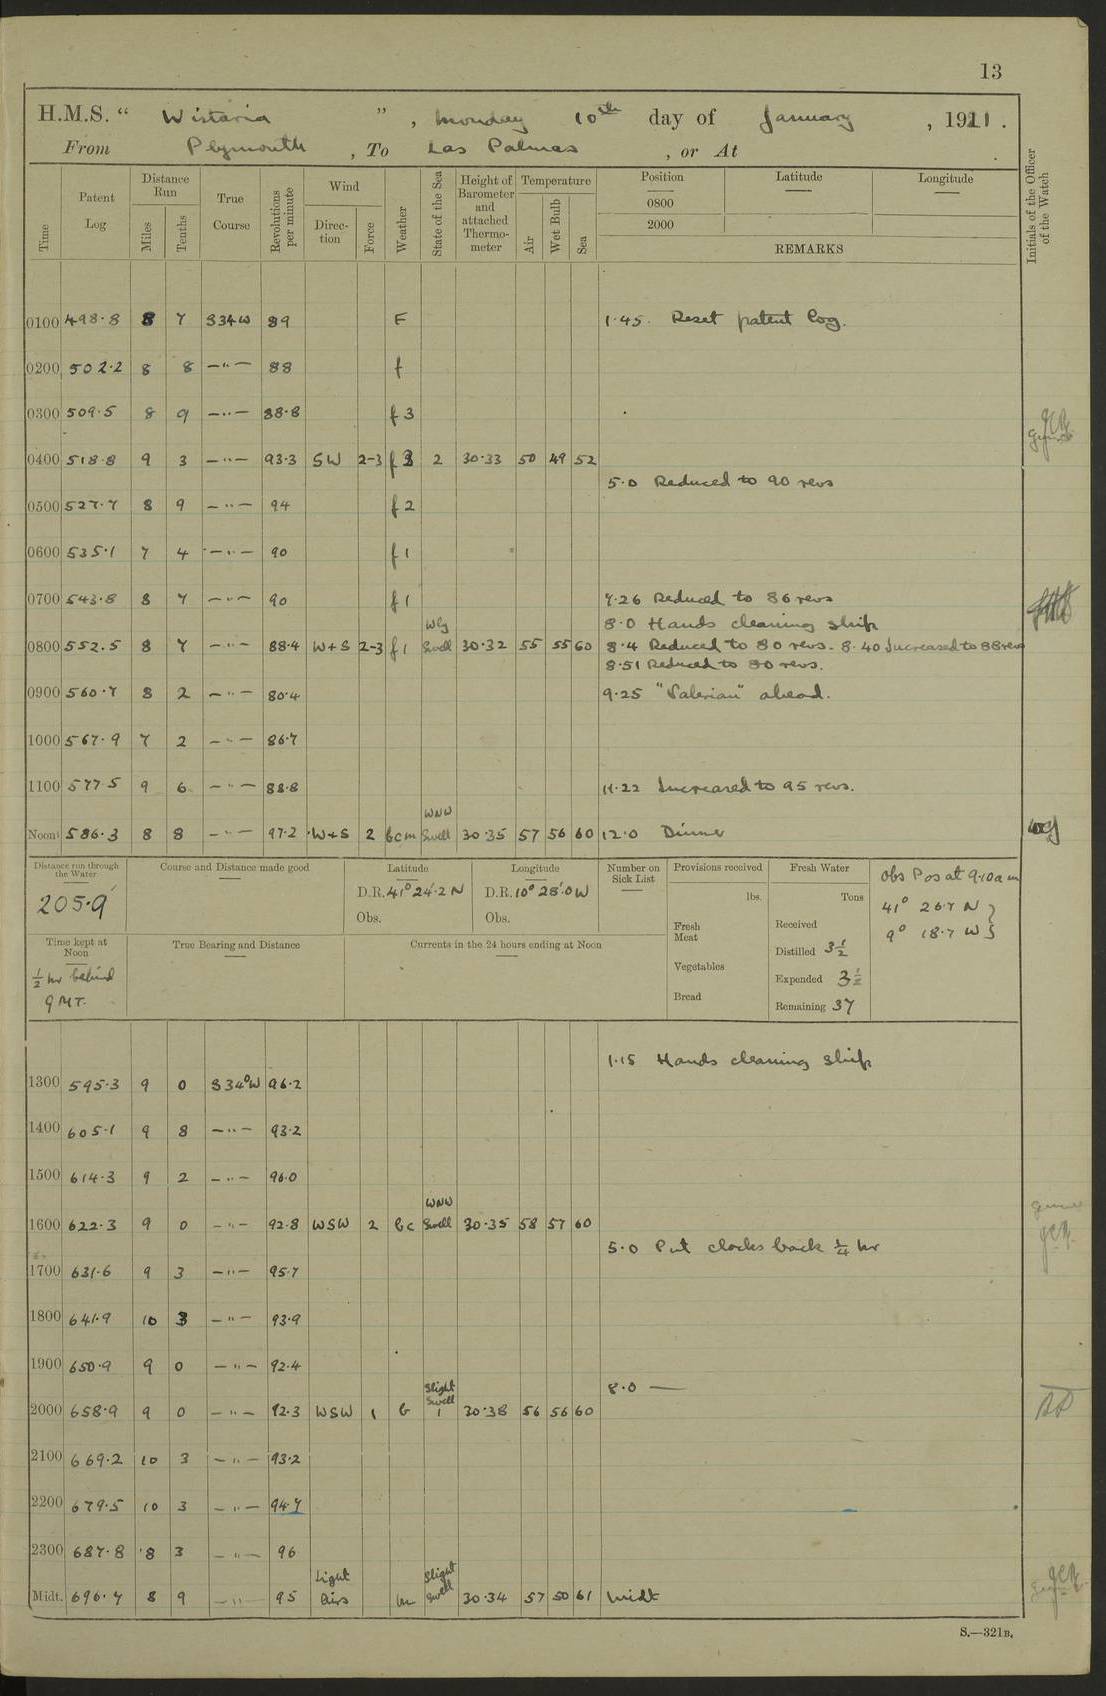 13
H.M.S. “ Wistaria ” , Monday 10th day of January , 1921 .
From Plymouth , To Las Palmas , or At .
Time Patent Log Distance Run Miles Tenths True Course Revolutions per minute Wind Direction Force Weather State of the Sea Height of Barometer and attached Thermometer Temperature Air Wet Bulb Sea Position Latitude Longitude
0800
2000
REMARKS
Initials of the Officer of the Watch
0100 498.8 8 7 S34W 89 F 1.45. Reset patent log.
0200 502.2 8 8 —"— 88 f
0300 509.5 8 9 —"— 88.8 f 3
0400 518.8 9 3 —"— 93.3 SW 2-3 f 3 2 30.33 50 49 52
5.0 Reduced to 90 revs
0500 527.7 8 9 —"— 94 f 2
0600 535.1 7 4 —"— 90 f 1
0700 543.8 8 7 —"— 90 f 1 7.26 Reduced to 86 revs
8.0 Hands cleaning ship
0800 552.5 8 7 —"— 88.4 W+S 2-3 f 1 Wly Swell 30.32 55 55 60 8.4 Reduced to 80 revs. 8.40 Increased to 88 revs
8.51 Reduced to 80 revs.
0900 560.7 8 2 —"— 80.4 9.25 "Valerian" ahead.
1000 567.9 7 2 —"— 86.7
1100 577.5 9 6 —"— 88.8 11.22 Increased to 95 revs.
Noon 586.3 8 8 —"— 97.2 W+S 2 bcm WNW Swell 30.35 57 56 60 12.0 Dinner
Distance run through the Water
205.9
Course and Distance made good
Latitude
D.R. 41° 24'.2 N
Obs.
Longitude
D.R. 10° 28'.0 W
Obs.
Number on Sick List
Provisions received
lbs.
Fresh Meat
Vegetables
Bread
Fresh Water
Tons
Received
Distilled 3½
Expended 3½
Remaining 37
Obs Pos at 9.10 am
41° 26.7 N }
9° 18.7 W }
Time kept at Noon
½ hr behind
GMT.
True Bearing and Distance
Currents in the 24 hours ending at Noon
1.15 Hands cleaning ship
1300 595.3 9 0 S34°W 96.2
1400 605.1 9 8 —"— 93.2
1500 614.3 9 2 —"— 96.0
1600 622.3 9 0 —"— 92.8 WSW 2 bc WNW Swell 30.35 58 57 60
5.0 Put clocks back ¼ hr
1700 631.6 9 3 —"— 95.7
1800 641.9 10 3 —"— 93.9
1900 650.9 9 0 —"— 92.4
8.0 —
2000 658.9 9 0 —"— 92.3 WSW 1 b Slight Swell 1 30.38 56 56 60
2100 669.2 10 3 —"— 93.2
2200 679.5 10 3 —"— 94.7
2300 687.8 8 3 —"— 96
Midt. 696.7 8 9 —"— 95 Light Airs m Slight Swell 30.34 57 50 61 Midt
S.—321B.